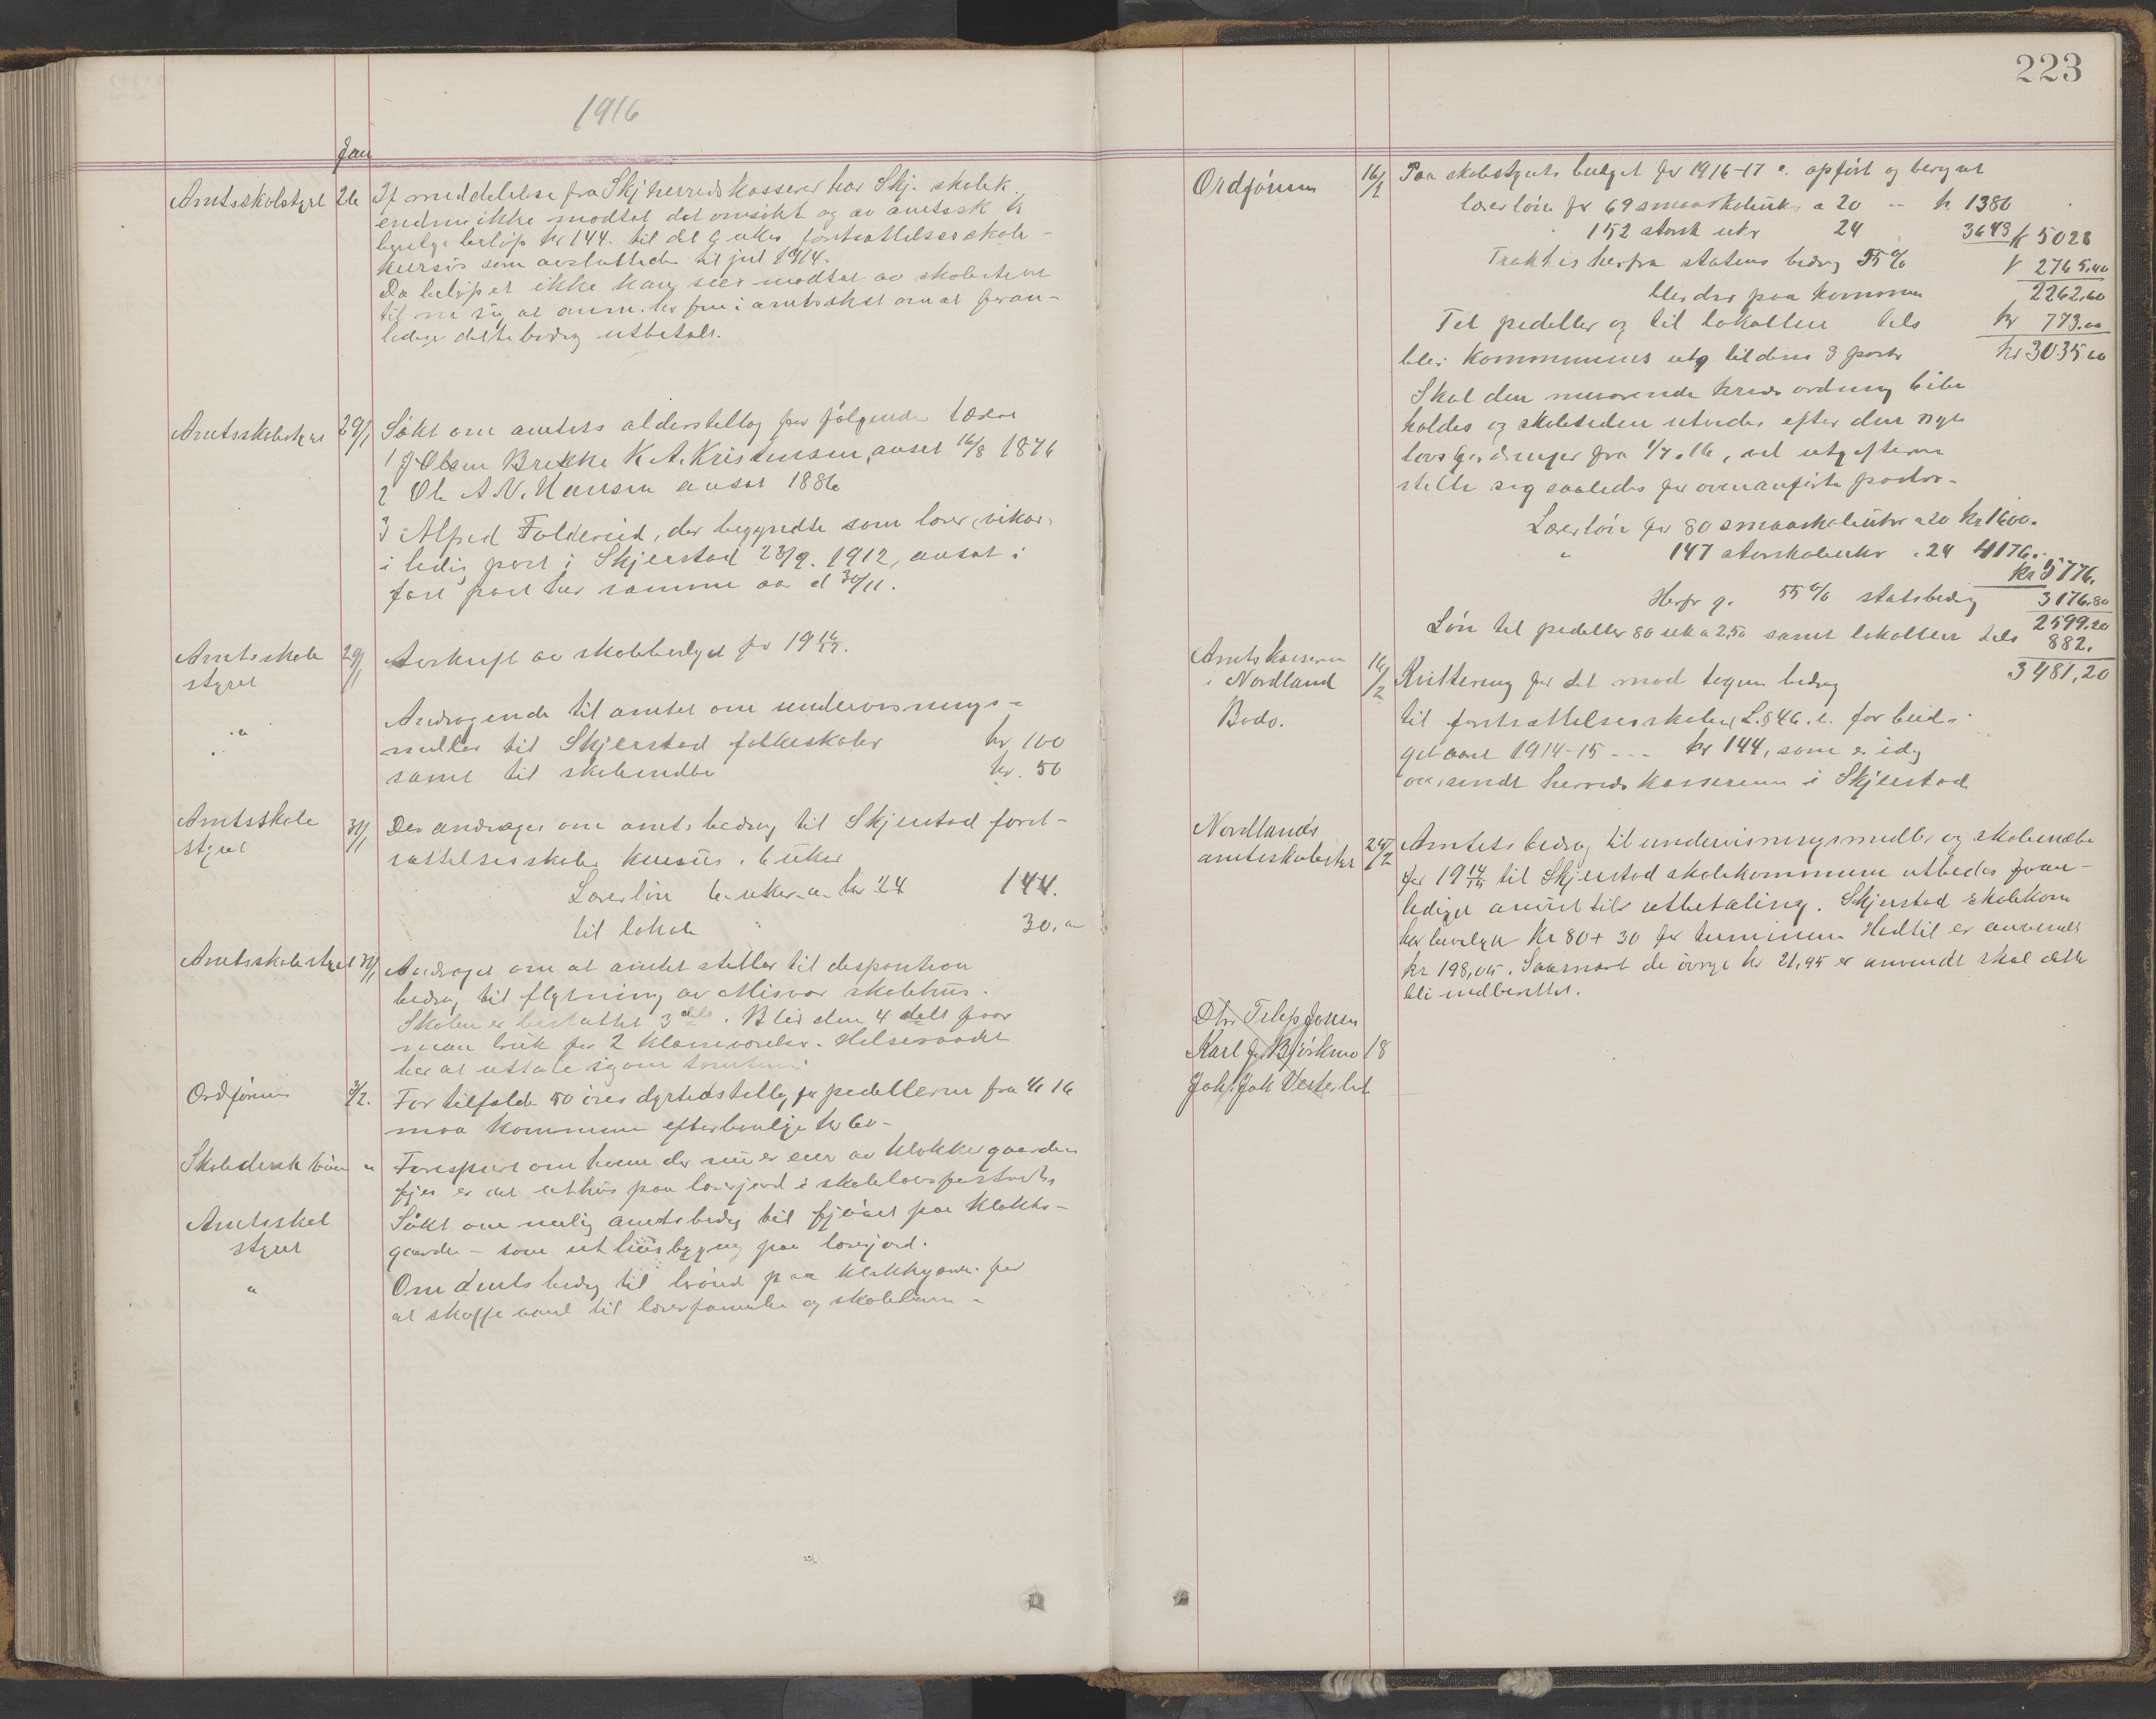 1916
Jan
Amtsskolstyret 26 If meddelelse fra Skj herredskasserer har Skj. skolek.
endnu ikke modtat det omsökte og av amtssk
beløp kr 144. til det 6 ukers fortsættelsesskole-
kursus som avsluttedes til jul 1914.
Da beløpet ikke kan sees modtat av skolestyret
til
lediges dette bidrag utbetalt.
Amtsskolestyret 29/1 Søkt om amtets alderstillæg for følgende lærere
1 J Olsen Brekke K. A. Kristensen, ansat 16/8 1876
2 Ole A N. Hansen ansat 1886
3 Alfred Foldereid, der begyndte som lærer, vikar,
i ledig post i Skjerstad 23/9. 1912, ansat i
fast post her samme aar d 30/11.
Amtsskole 29/1 Avskrift av skolebudget for 19 16/17.
styret
" Andragende til amtet om undervisnings-
midler til Skjerstad folkeskoler kr 100
samt til skolemøbler kr. 50
Amtsskole 31/1 Der andrages om amtsbidrag til Skjerstad fort-
styret
sættelsesskoles kursus, 6 uker
Lærerløn 6 uker a kr 24 144.
til lokale 30,
Amtsskolestyret 31/1 Andraget om at amtet stiller til disposition
bidrag til flytning av Misvær skolehus.
Skolen er besluttet 3 delt. Blir den 4 delt faar
man bruk for 2 klasseværelser. Helseraadet
har at uttale sig om tomten
Ordføreren 3/2. For tilfælde 50 øres dyrtidstillæg for pedellerne fra 1/1 16
maa kommunen efterbevilge kr 60-
Skoledirektøren " Forespurt om hvem der nu er eier av klokkergaardens
fjøs er det uthus paa lærerjord i skolelovens forstand
Amtsskol Søkt om mulig amtsbidrag til fjøset paa klokker-
styret gaarden - som uthusbygning paa lærerjord.
" Om amtsbidrag til brønd paa klokkergaarden for
at skaffe vand til lærerfamilie og skolebarn -
223
Ordføreren 16/2 Paa skolestyrets budget for 1916-17 er opført og beregnet
lærerløn for 69 smaaskoleuker a 20 - kr 1380
152 storsk uker 24 3643 kr 5028
Trækkes herfra statens bidrag 55% 2765.40
blir der paa kommunen 2262.60
Til pedeller og til lokaller tils kr 773.00
blir kommunens utg til disse 3 poster kr 3035.60
Skal den nuværende kredsordning bibe
holdes og skoletiden utvides efter den nye
lovs fra 1/7.16, vil utgifterne
stille sig saaledes for ovenanførte poster-
Lærerløn for 80 smaaskoleuker a 20 kr 1600.
" 147 storskoleuker a 24 4176.
kr 5776.
Herfr g. 55% statsbidrag 3176.80
2599.20
Løn til pedeller 80 uk a 2,50 samt lokaller tils 882.
3481,20
Amtskasseren 16/2 Kvittering for det modtagne bidrag
i Nordland til fortsættelsesskoler, L. § 46. for bud-
Bodø. getaaret 1914-15 -- kr 144, som er idag
oversendt herredskassereren i Skjerstad
Nordlands
amtsskolestyr 24/2 Amtets bidrag til undervisningsmidler og skolemøbler
for 19 14/15 til Skjerstad skolekommune utbedes foran-
lediget anvist til utbetaling. Skjerstad skolekom
har bevilget kr 80 + 30 for terminen. Hidtil er anvendt
kr 198,05. Saasnart de øvrige kr 21,95 er anvendt skal dette
bli indberettet.
Dhr Filip Jensen
Karl J. Björkmo 18
Joh. Joh Vesterli